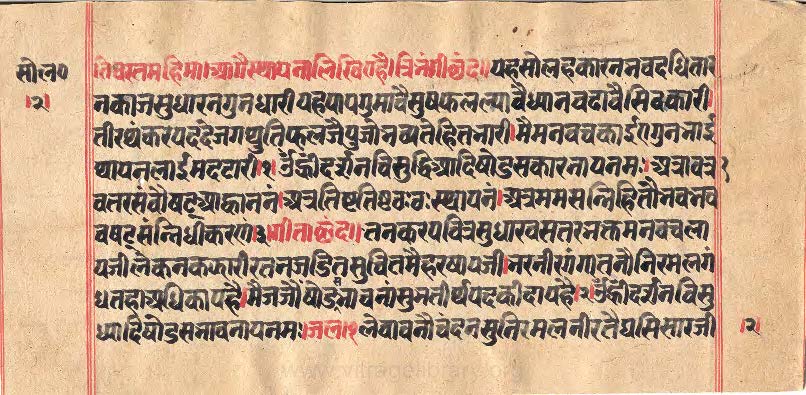 सोल०
।२।
तिधरतमहिमा।आगैस्थापनालिखिएहै।त्रिनंगीछंद॥यहसोलहकारननवदधितार
नकाजसुधारनगुनधारीयहपापगुमावैसुषफलल्यावैध्यानवढावैसिवकारी।
तीरथंकरपददैजगथुतिफलजैपुजौनव्यतेहितनारी।मैमनवचकाईगगुनगाई
थापनलाईमदटारी।१।उँह्रीदर्शनविसुद्धिआदिषोडसकारनायनमः।अत्रावत्र १
वतरसंवौषट्आह्वाननं।अत्रतिष्टतिष्टवःवःस्थापनं।अत्रममसन्निहितौनवनव
वषट्संन्निधीकरणं।३।गीताछंद।तनकरपवित्रसुधारवसतरनक्तमनवचला
यजीलैकनकफारीरतनजडितसुचितमैहरषायजी।नरनीरगंगातनौनिरमलगं
धतदाअधिकायहै।मैजजौंषोडनावनांसुनतीर्थपदकीदायहै।२।उँह्रीदर्शनविसु
ध्यादिषोडसनावनायनमः।जल।१लेवावनौचंदनसुनिरमलनीरतैघसिसारजी
।२।
www.vitragelibrary.org